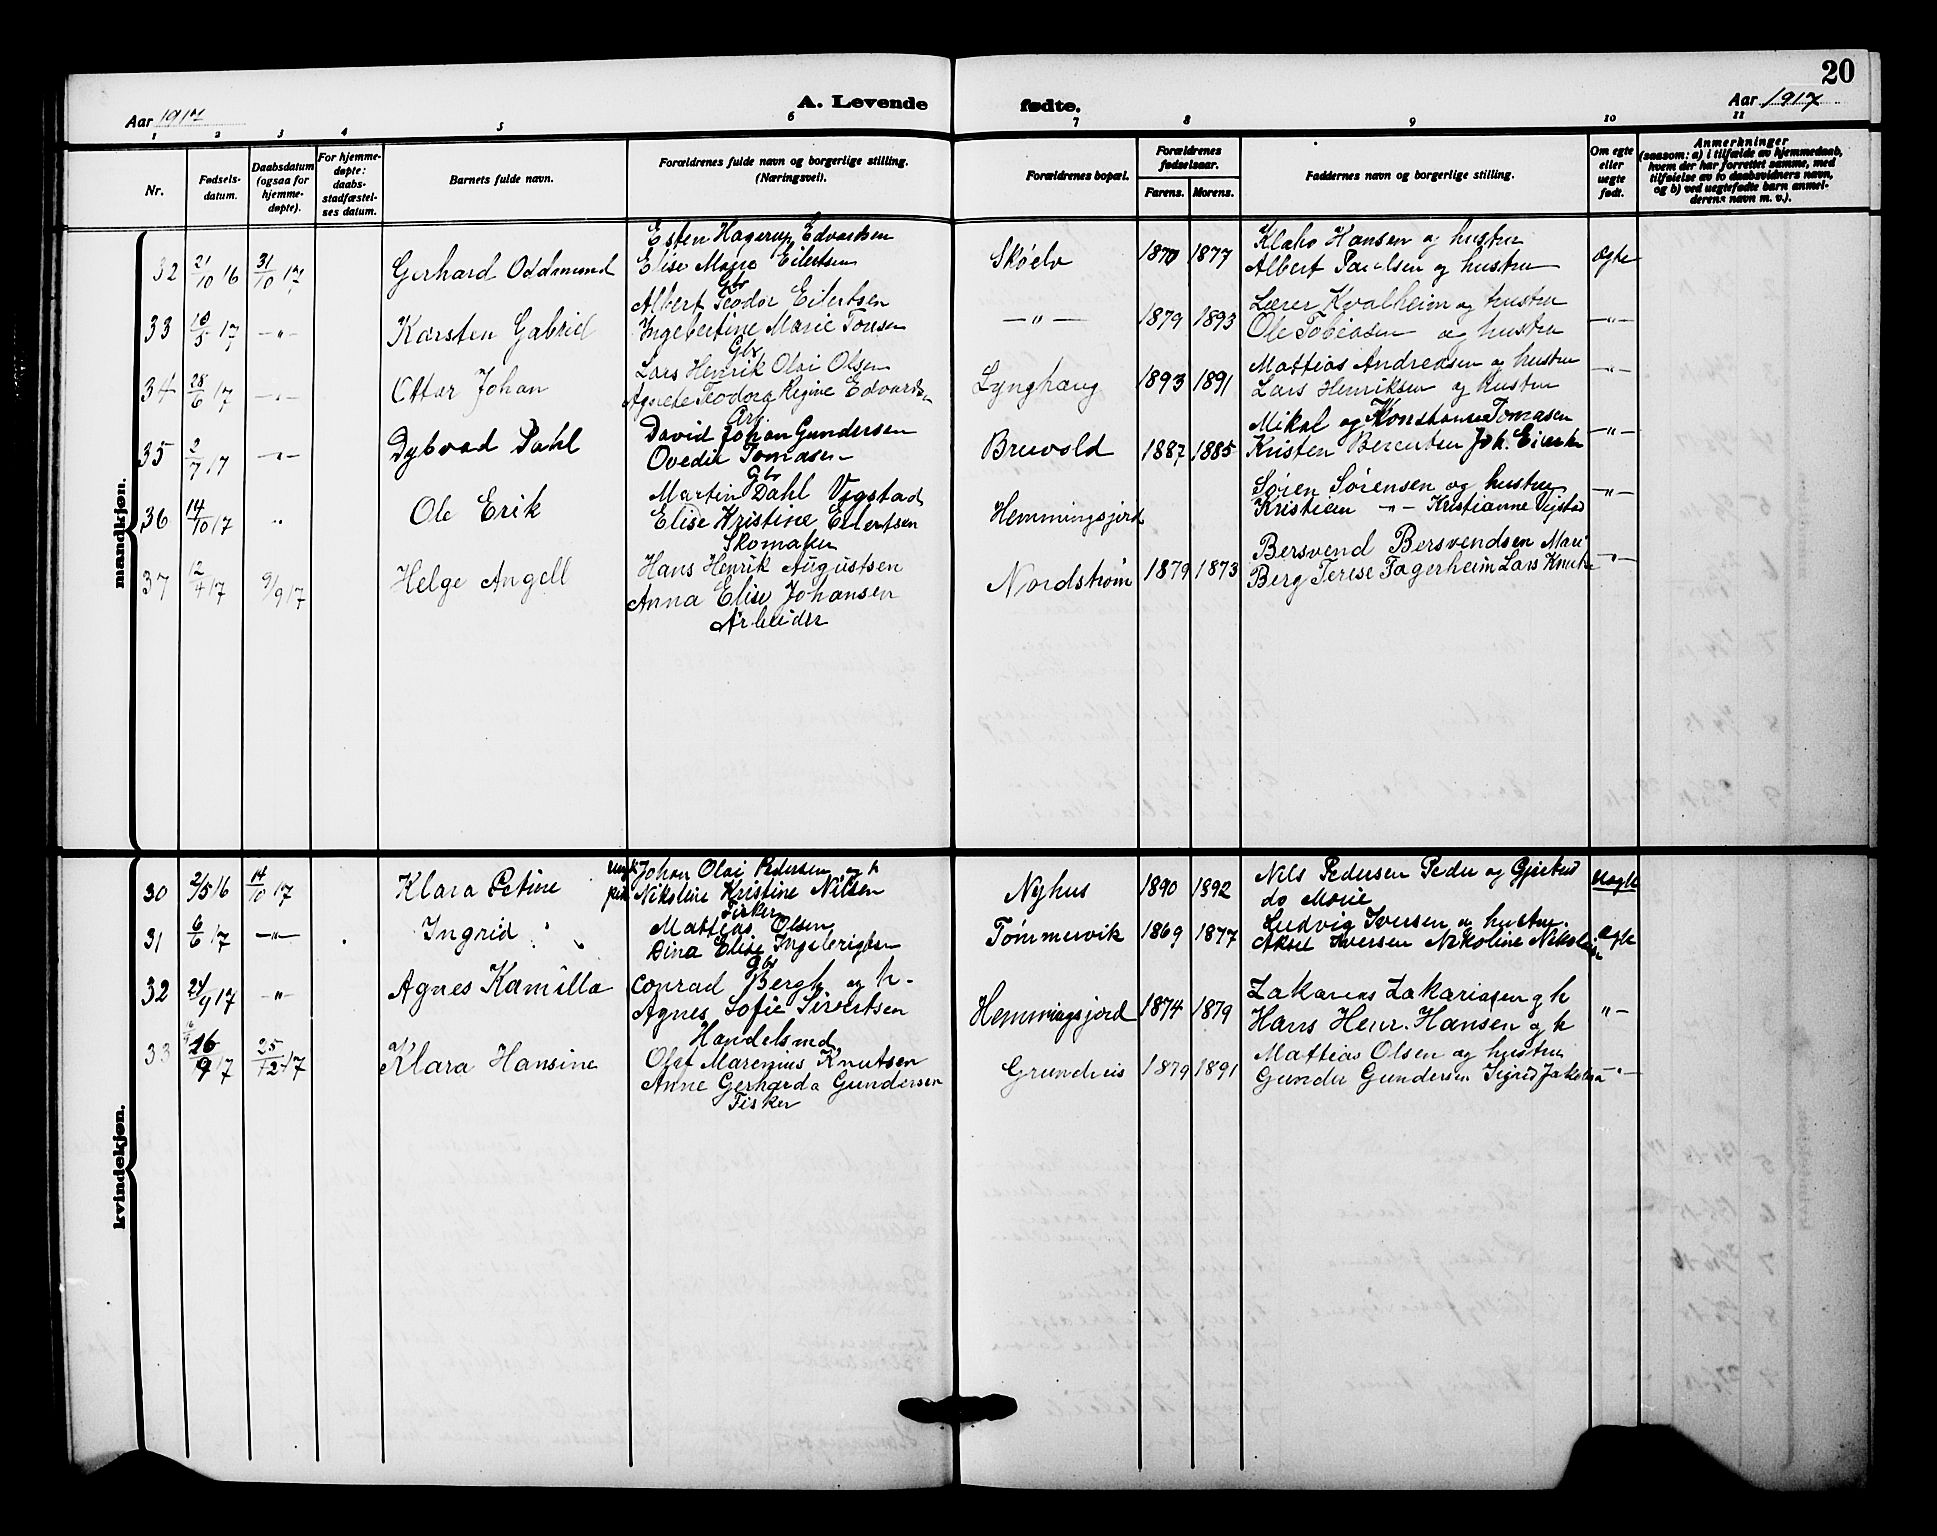 20
Aar 1917
A. Levende fødte.
Aar 1917
1 2 3 4 5 6 7 8 9 10 11
Nr.
Fødsels-
datum.
Daabsdatum
(ogsaa for
hjemme-
døpte).
For hjemme-
døpte:
daabs-
stadfæstel-
ses datum.
Barnets fulde navn.
Forældrenes fulde navn og borgerlige stilling.
(Næringsvei).
Forældrenes bopæl.
Forældrenes
fødselsaar.
Farens. Morens.
Faddernes navn og borgerlige stilling.
Om egte
eller
uegte
født.
Anmerkninger
(saasom: a) i tilfælde av hjemmedaab,
hvem der har forrettet samme, med
tilføielse av to daabsvidners navn,
og b) ved uegtefødte barn anmel-
derens navn m. v.).
mandkjøn.
32 21/10 16 31/10 17 Gerhard Oddmund
Esten Hagerup Edvardsen
Elise Marie Eilertsen
Gbr
Skøelv 1870 1877
Klaho Hansen og hustru
Albert Paulsen og hustru
Egte
33 10/5 17 —"— Karsten Gabriel
Albert Teodor Eilertsen
Ingebertine Marie Tonsen
Gbr
—"— 1879 1893
Lærer Kvalheim og hustru
Ole Tobiasen og hustru
—"—
34 28/6 17 —"— Ottar Johan
Lars Henrik Olai Olsen
Agnete Teodora Regine Edvardsen
Arb
Lynghaug 1893 1891
Mattias Andreasen og hustru
Lars Henriksen og hustru
—"—
35 2/7 17 —"— Dybvad Dahl
David Johan Gundersen
Ovedie Tomasen
Gbr
Bruvold 1887 1885
Mikal og Konstanse Tomasen
Kristen Berentsen Joh.
—"—
36 14/10 17 " Ole Erik
Martin Dahl Vigstad
Elise Kristine Eilertsen
Skomaker
Hemmingsjord
Søren Sørensen og hustru
Kristian —"— Kristianne Vigstad
—"—
37 12/4 17 9/9 17 Helge Angell
Hans Henrik Augustsen
Anna Elise Johansen
Arbeider
Nordstrøm 1879 1873
Bersvend Bersvendsen Mari
Berg Terese Fagerheim Lars Knutsen
—"—
kvindekjøn.
30 2/5 16 14/10 17 Klara Petine
ungk Johan Olai Pedersen og h
pik Nikoline Kristine Nilsen
Fisker
Nyhus 1890 1892
Nils Pedersen Peder og Gjertrud
do Marie
Uegte
31 6/6 17 —"— Ingrid
Mattias Olsen
Dina Elise Ingebrigtsen
Gbr
Tømmervik 1869 1877
Ludvig Iversen og hustru
Aksel Iversen Nikoline
Egte
32 24/9 17 —"— Agnes Kamilla
Conrad Bergh og h-
Agnes Sofie Sivertsen
Handelsmd
Hemmingsjord 1874 1879
Zakarias Zakariasen og h
Hans Henr. Hansen og h
"—
33 16/9 17 25/12 17 Klara Hansine
Olaf Marenius Knutsen
Anne Gerharda Gundersen
Fisker
Grundreis 1879 1891
Mattias Olsen og hustru
Gunder Gundersen Sigrid Jakobsen
—"—